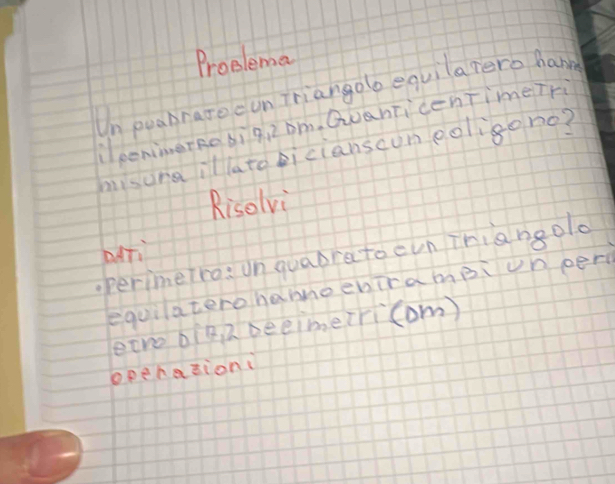 Problema
Un quadrato e un triangolo equilatero hanno
il perimetro di 9,2 dm. Quanti centimetri
misura il lato di cianscun poligono?
Risolvi
DATi
.perimetro: un quadrato e un triangolo
equilatero hanno entrambi un peri
etro di 9,2 decimetri (dm)
operazioni